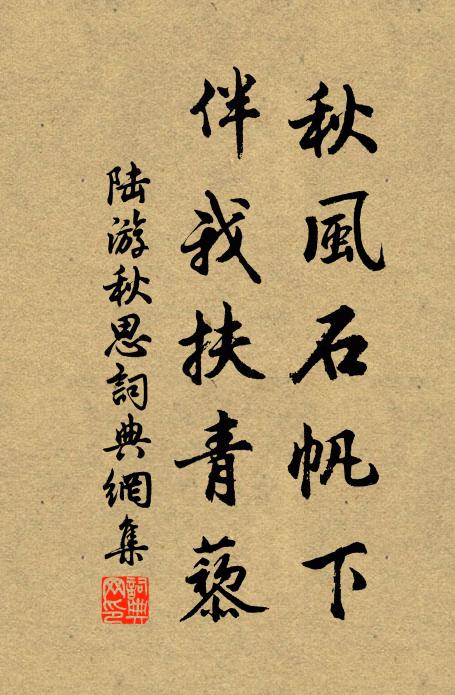 秋風石帆下
伴我扶青藜
陆游秋思詞典網集
詞典
网印